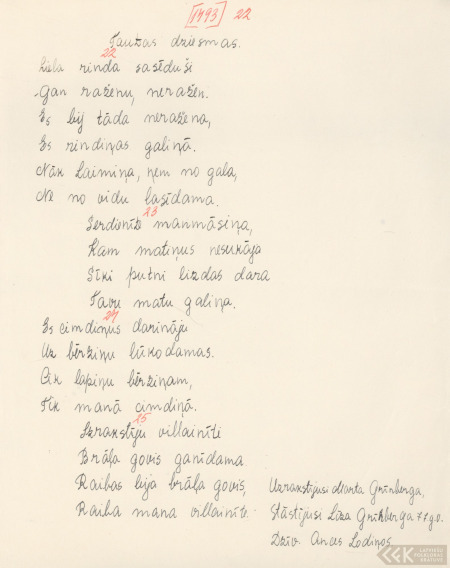 [1493] 22
Tautas dziesmas.
22
Liela rinda sasēduši
Gan raženu, neražen.
Es bij tāda neražena,
Es rindiņas galiņā.
Nāk Laimiņa, ņem no gala,
Ne no vidu lasīdama.
23
Serdienīte manmāsiņa,
Kam matiņus nesukāja
Sīki putni lizdas dara
Tavu matu galiņa.
24
Es cimdiņus darināju
Uz bērziņu lūkodamas.
Cik lapiņu bērziņam,
Tik manā cimdiņā.
25
Izrakstīju villainīti
Brāļa govis ganīdama
Raibas bija brāļa govis,
Raiba mana villainīte.
Uzrakstījusi Marta Grīnberga,
Stāstījusi Līza Grīnberga 77 g.v.
Dzīv. Ances Lodiņos.
LATVIEŠU
FOLKLORAS
KRĀTUVE